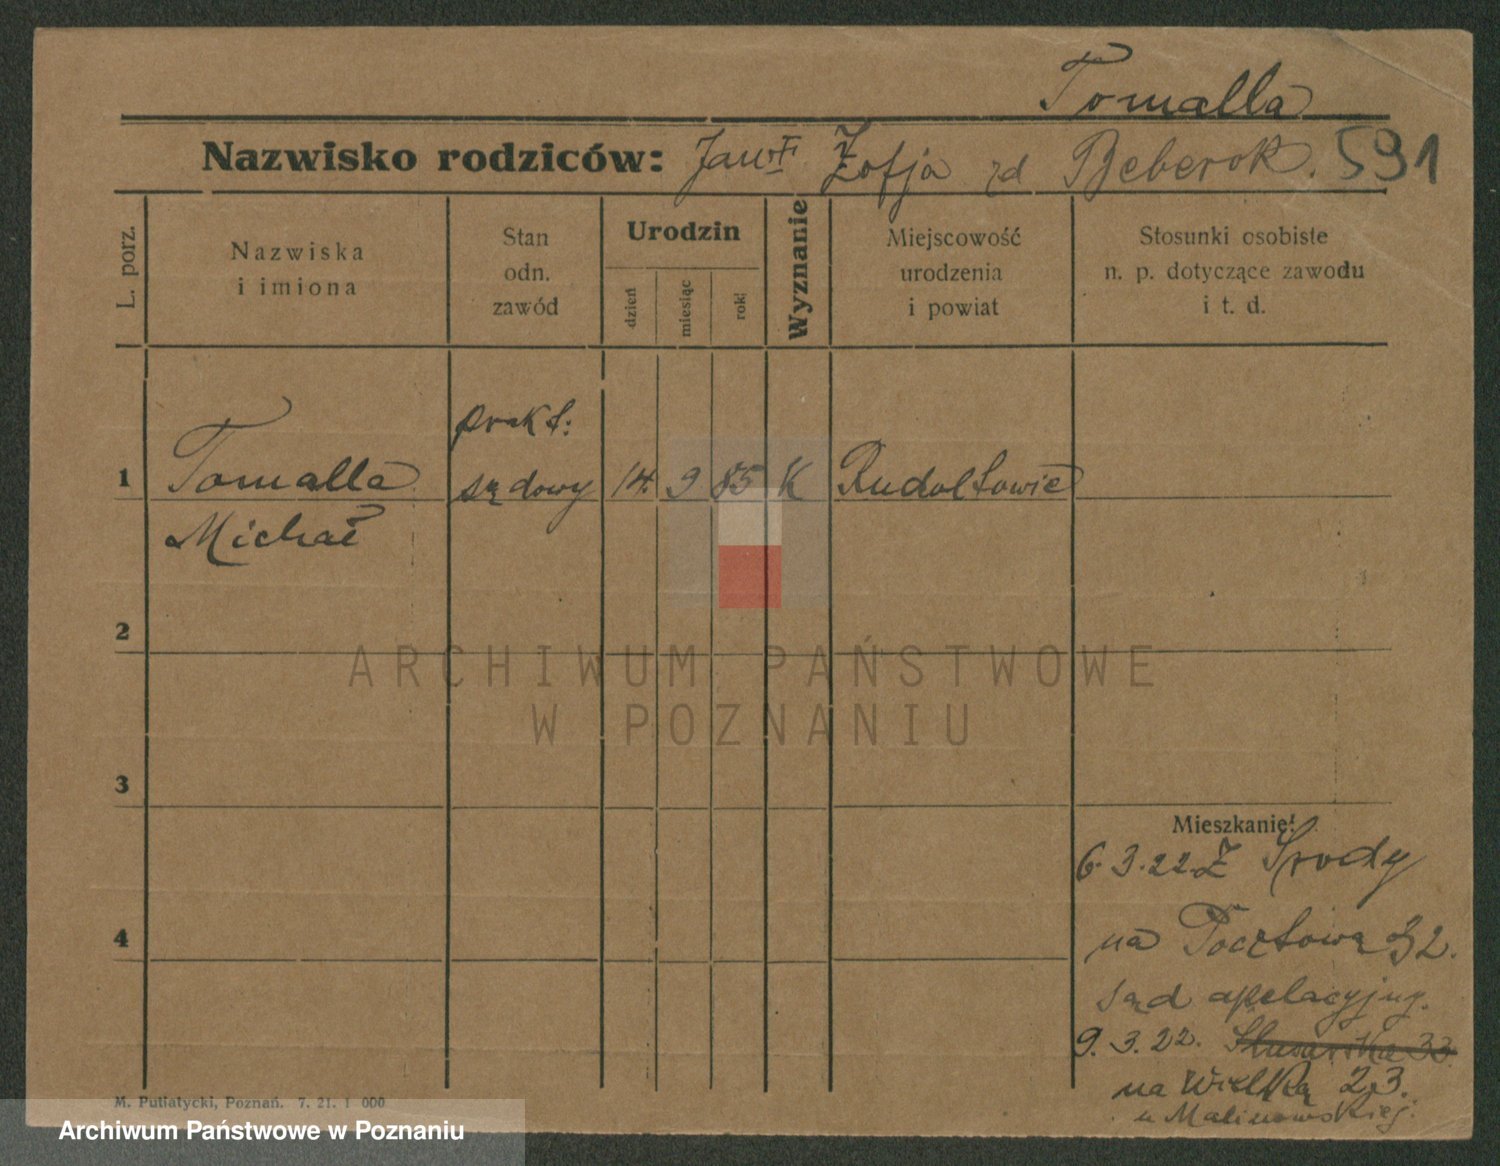 Tomalla
Nazwisko rodziców: Jan Zofja zd Beberok. 591
L. porz.
Nazwiska
i imiona
Stan
odn.
zawód
Urodzin
dzień
miesiąc
rok
Wyznanie
Miejscowość
urodzenia
i powiat
Stosunki osobiste
n. p. dotyczące zawodu
i t. d.
1 Tomalla
Michał
prakt:
sądowy
14. 9 85 K Rudoltowie
2
3
4
Mieszkanie:
6.3.22 Z Środy
na Pocztową 32.
sąd apelacyjny.
9.3.22. Ślusarska 33
na Wielką 23.
u Malinowskiej.
M. Putiatycki, Poznań. 7. 21. 1 000
ARCHIWUM PAŃSTWOWE
W POZNANIU
Archiwum Państwowe w Poznaniu